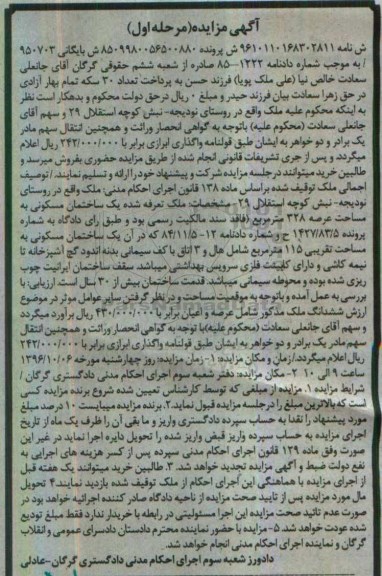 آگهی مزایده(مرحله اول)
ش نامه ۹۶۱۰۱۱۰۱۶۸۳۰۲۸۱۱ ش پرونده ۸۵۰۹۹۸۰۰۵۶۵۰۰۸۸۰ ش بایگانی ۹۵۰۷۰۳
/ به موجب شماره دادنامه ۱۲۲۲--۸۵ صادره از شعبه ششم حقوقی گرگان آقای جانعلی
سعادت خالص نیا (علی ملک پویا) فرزند حسن به پرداخت تعداد ۳۰ سکه تمام بهار آزادی
در حق زهرا سعادت بیان فرزند حیدر و مبلغ ۰ ریال در حق دولت محکوم و بدهکار است نظر
به اینکه محکوم علیه ملک واقع در روستای نودیجه- نبش کوچه استقلال ۲۹ و سهم آقای
جانعلی سعادت (محکوم علیه) باتوجه به گواهی انحصار وراثت و همچنین انتقال سهم مادر
یک برادر و دو خواهر به ایشان طبق قولنامه واگذاری ابرازی برابر با ۲۴۲/۰۰۰/۰۰۰ ریال اعلام
میگردد و پس از جری تشریفات قانونی انجام شده از طریق مزایده حضوری بفروش میرسد و
طالبین خرید میتوانند در جلسه مزایده شرکت و پیشنهاد خود را ارائه و تسلیم نمایند. / توصیف
اجمالی ملک توقیف شده براساس ماده ۱۳۸ قانون اجرای احکام مدنی: ملک واقع در روستای
نودیجه- نبش کوچه استقلال ۲۹- مشخصات: ملک تعرفه شده یک ساختمان مسکونی به
مساحت عرصه ۳۲۸ مترمربع (فاقد سند مالکیت رسمی بود و طبق رای دادگاه به شماره
پرونده ۱۴۲۷/۸۳/۵ ح و شماره دادنامه ۱۲- ۸۴/۱۱/۵ که در آن یک ساختمان مسکونی به
مساحت تقریبی ۱۱۵ مترمربع شامل هال و ۳ اتاق با کف سیمانی بدنه اندود گچ آشپزخانه تا
نیمه کاشی و دارای کابینت فلزی سرویس بهداشتی میباشد. سقف ساختمان ایرانیت چوب
ریزی شده بوده و محوطه سیمانی میباشد. قدمت ساختمان بیش از ۳۰ سال است. ارزیابی: با
بررسی به عمل آمده و باتوجه به موقعیت مساحت و در نظر گرفتن سایر عوامل موثر در موضوع
ارزش ششدانگ ملک مذکور شامل عرصه و اعیان برابر با ۴۳۰/۰۰۰/۰۰۰ ریال برآورد میگردد
و سهم آقای جانعلی سعادت (محکوم علیه)با توجه به گواهی انحصار وراثت و همچنین انتقال
سهم مادر یک برادر و دو خواهر به ایشان طبق قولنامه واگذاری ابرازی برابر با ۲۴۲/۰۰۰/۰۰۰
ریال اعلام میگردد./زمان و مکان مزایده: ۱-زمان مزایده: روز چهارشنبه مورخه ۱۳۹۶/۱۰/۰۶
ساعت ۹ الی ۱۰ ۲- مکان مزایده: دفتر شعبه سوم اجرای احکام مدنی دادگستری گرگان /
شرایط مزایده ۱. مزایده از مبلغی که توسط کارشناس تعیین شده شروع برنده مزایده کسی
است که بالاترین مبلغ را در جلسه مزایده قبول نماید.۲. برنده مزایده میبایست ۱۰ درصد مبلغ
مورد پیشنهاد را نقدا به حساب سپرده دادگستری واریز و ما بقی آن را ظرف یک ماه از تاریخ
اجرای مزایده به حساب سپرده واریز قبض واریز شده را تحویل دایره اجرا نماید در غیر این
صورت وفق ماده ۱۲۹ قانون اجرای احکام مدنی سپرده پس از کسر هزینه های اجرایی به
نفع دولت ضبط و آگهی مزایده تجدید خواهد شد. ۳. طالبین خرید میتوانند یک هفته قبل
از اجرای مزایده با هماهنگی این اجرای احکام از ملک توقیف شده بازدید نمایند.۴ تحویل
مال مورد مزایده پس از تایید صحت مزایده از ناحیه دادگاه صادر کننده اجرائیه خواهد بود در
صورت عدم تائید صحت مزایده این اجرا مسئولیتی در رابطه با خریدار ندارد فقط مبلغ تودیع
شده عودت خواهد شد. ۵- مزایده با حضور نماینده محترم دادستان دادسرای عمومی و انقلاب
گرگان و نماینده اجرای احکام مدنی انجام خواهد شد.
دادورز شعبه سوم اجرای احکام مدنی دادگستری گرگان-عادلی